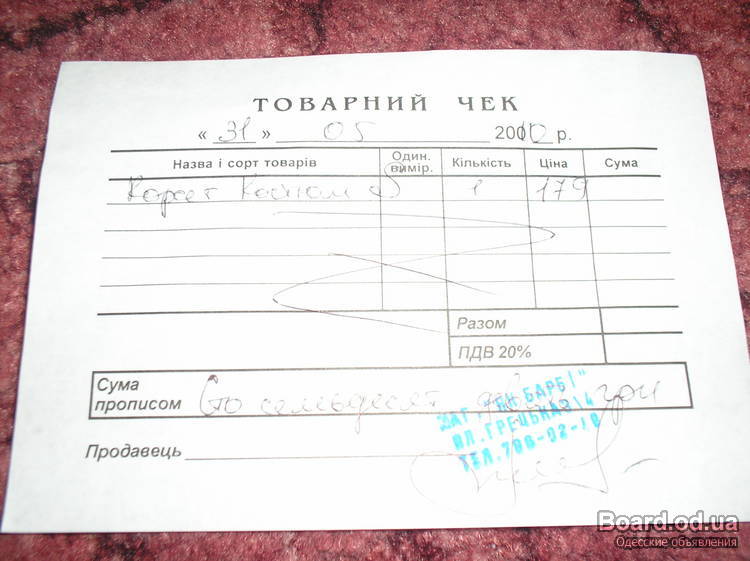 ТОВАРНИЙ ЧЕК
« 31 » 05 2010 р.
Назва і сорт товарів Один. вимір. Кількість Ціна Сума
Корсет Костюм S 1 179
Разом
ПДВ 20%
Сума прописом Сто семьдесят девять грн
Продавець
МАГ. "ЯК БАРБІ"
ВЛ. ГРЕЦЬКАЯ 3\4
ТЕЛ. 706-02-10
Board.od.ua
Одесские объявления